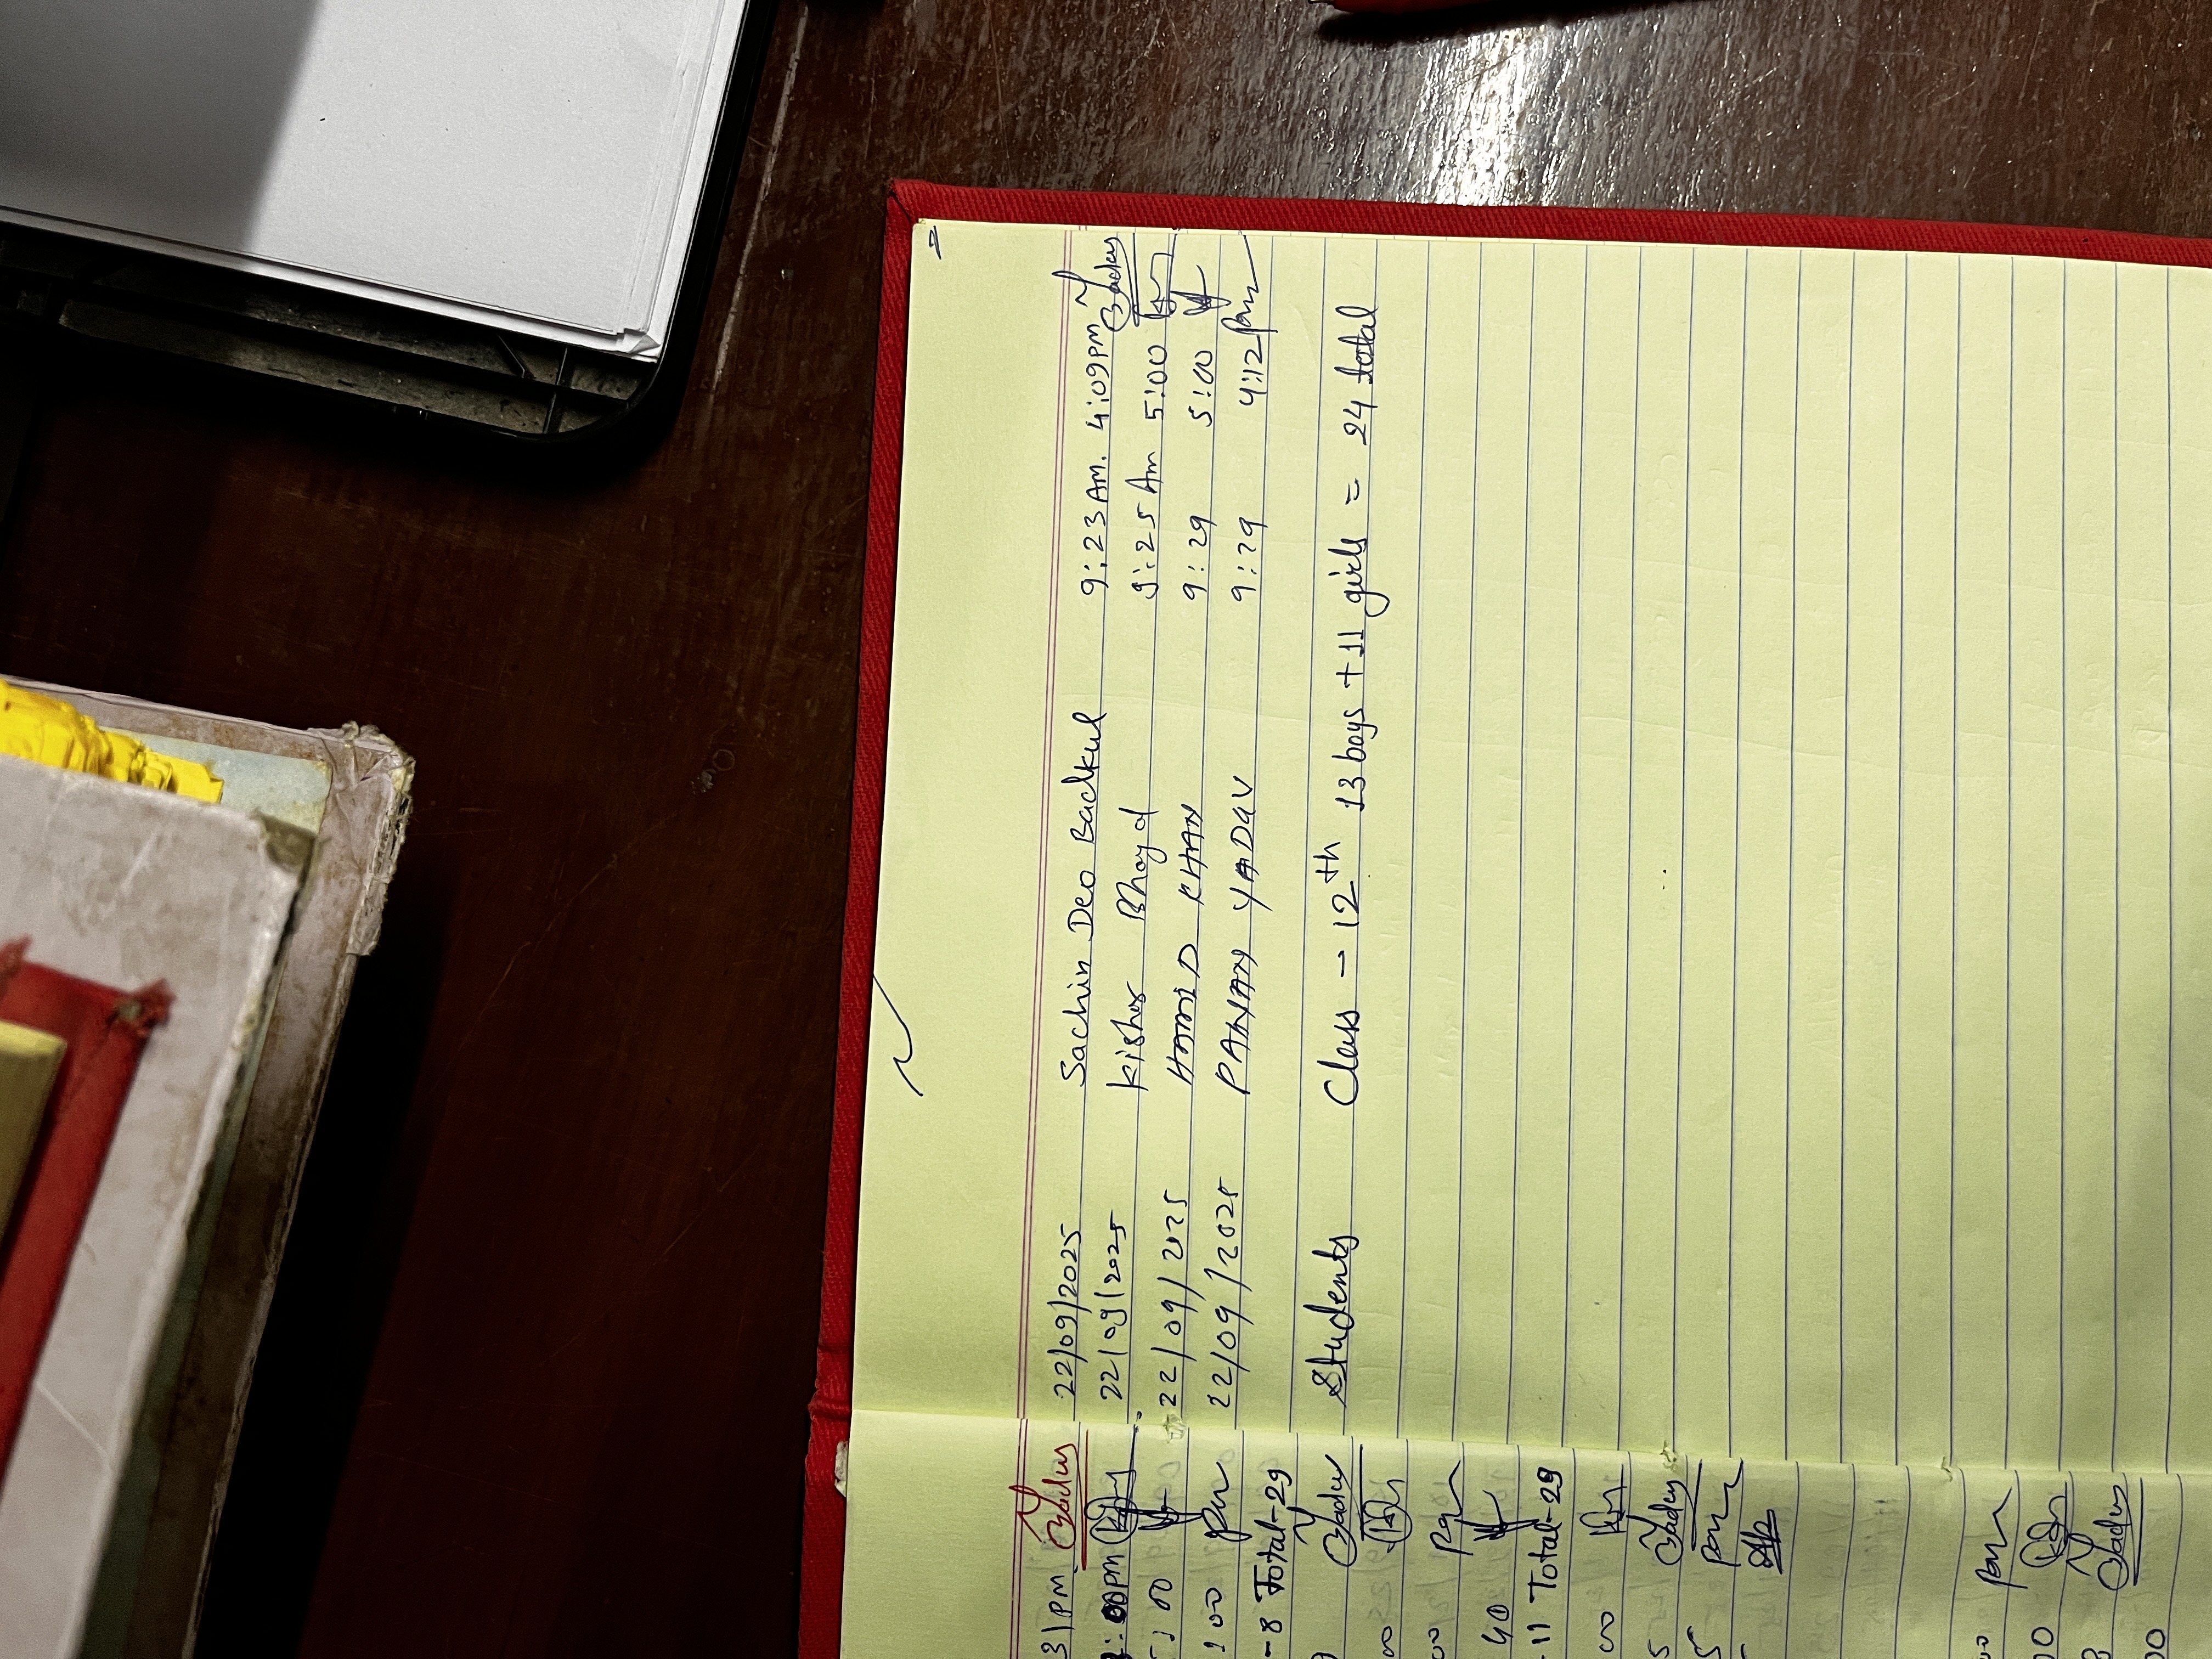 31 PM
:00PM
5:00
:00
-8 Total-29
00
00
40
-11 Total-29
00
5
5
00
00
8
00
22/09/2025 Sachin Deo Badkul 9:23 AM. 4:09PM
22/09/2025 Kishor 9:25 Am 5:00
22/09/2025 HAMID KHAN 9:29 5:00
22/09/2025 PAWAN YADAV 9:29 4:12
Students Class - 12th 13 boys + 11 girls = 24 total